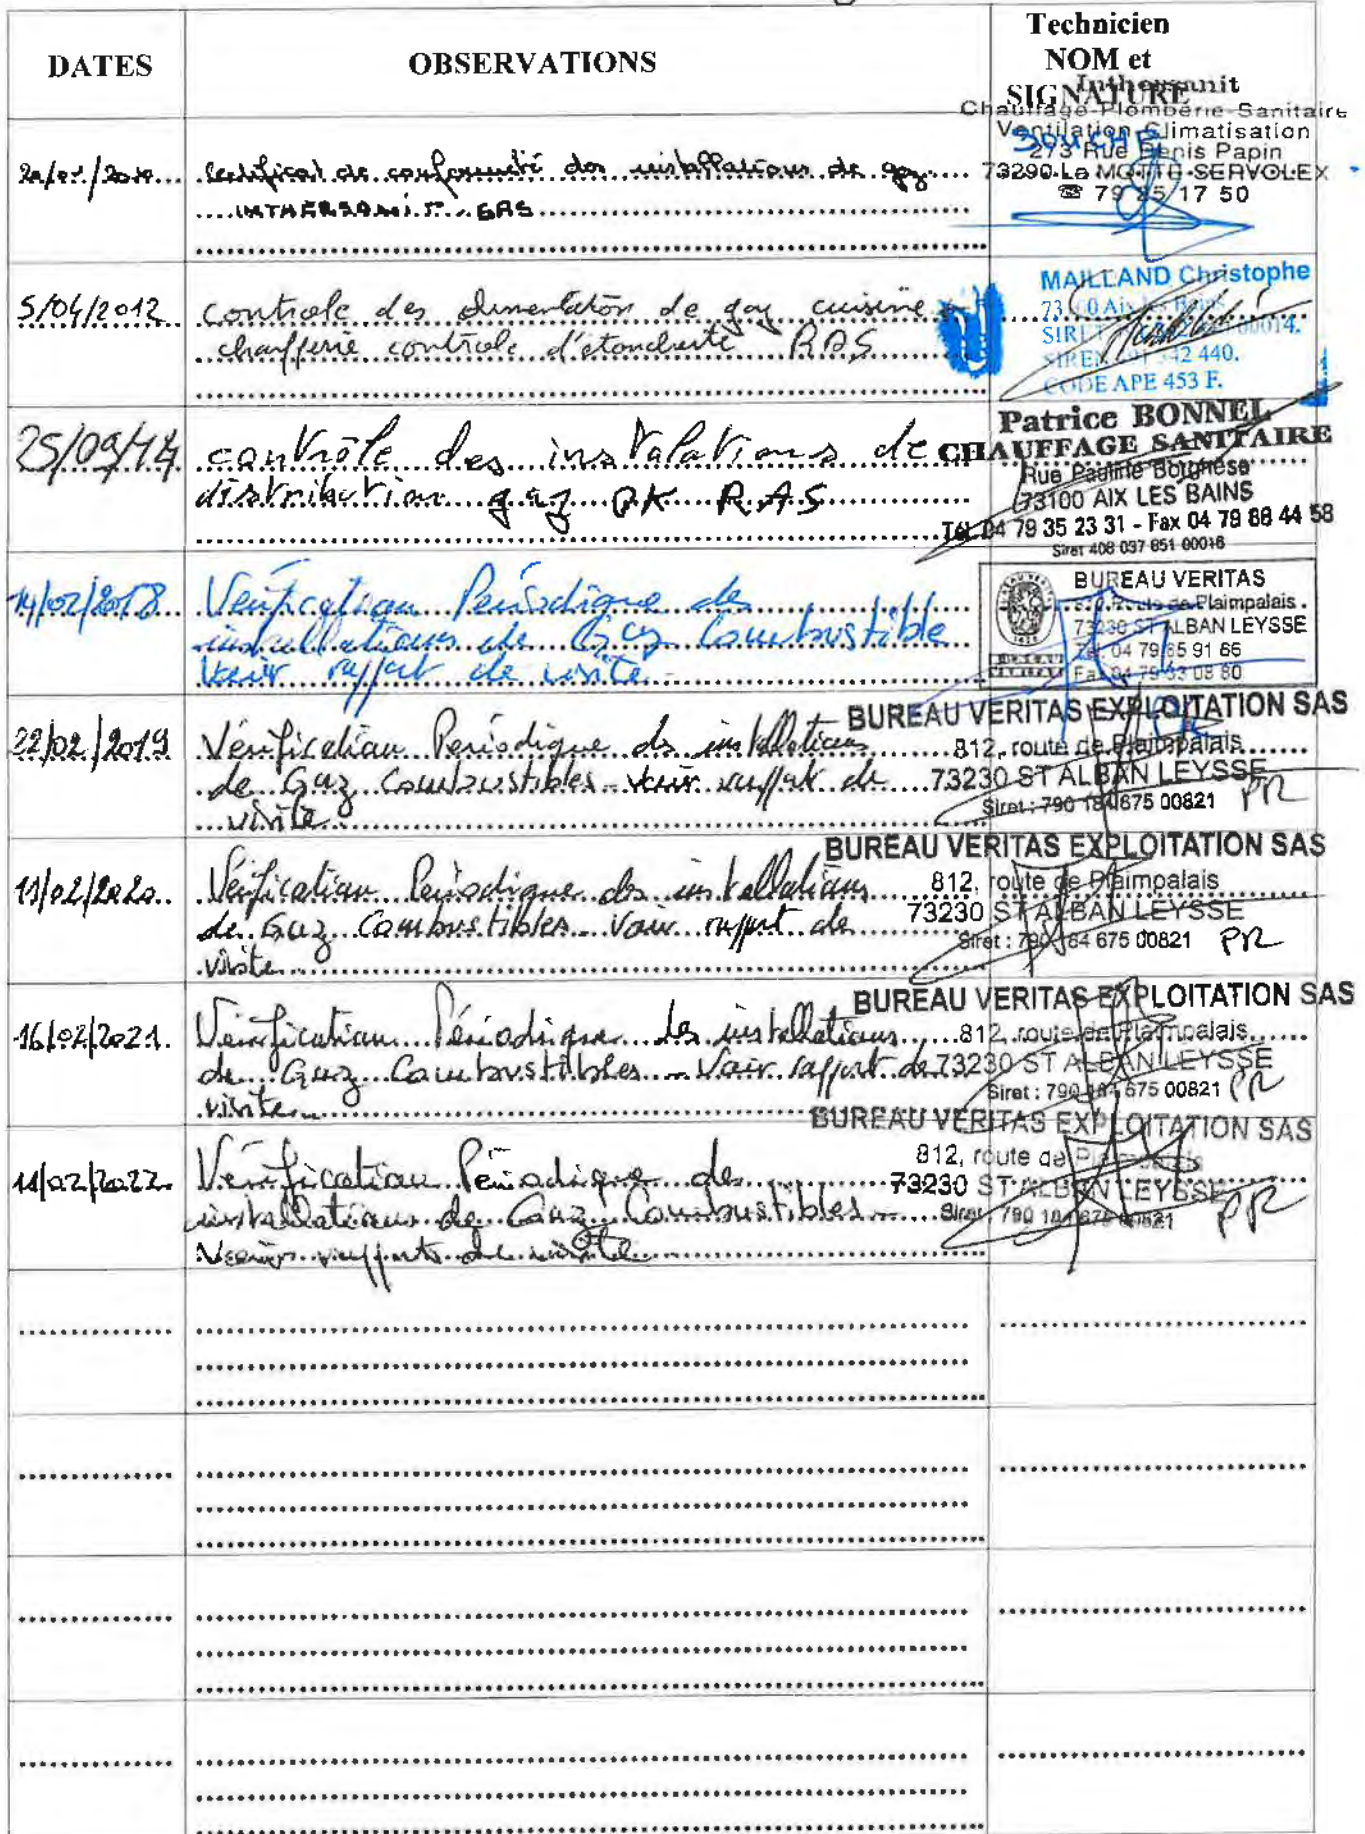 DATES
OBSERVATIONS
Technicien
NOM et
SIGNATURE
Inthersanit
Chauffage-Plomberie-Sanitaire
Ventilation Climatisation
SOUCHE
273 Rue Denis Papin
73290 La MOTTE-SERVOLEX
☎ 79 25 17 50
certificat de conformité des installations de gaz
INTHERSANIT SAS
5/04/2012
controle des alimentation de gaz cuisine
chaufferie controle d'etancheité RAS
MAILLAND Christophe
Aix les Bains
SIRET 00014.
SIREN 491 342 440.
CODE APE 453 F.
25/09/14
contrôle des instalations de
distribution gaz OK RAS
Patrice BONNEL
CHAUFFAGE SANITAIRE
Rue Pauline Borghese
73100 AIX LES BAINS
Tél. 04 79 35 23 31 - Fax 04 79 88 44 58
Siret 408 037 851 00016
14/02/2018
Vérification Périodique des
installations de Gaz Combustible
Voir rapport de visite -
BUREAU VERITAS
Route de Plaimpalais
73230 ST ALBAN LEYSSE
Tél. 04 79 65 91 66
Fax 04 79 33 08 80
22/02/2019
Vérification Périodique ds installations
de Gaz Combustibles - Voir rapport de
visite
BUREAU VERITAS EXPLOITATION SAS
812, route de Plaimpalais
73230 ST ALBAN LEYSSE
Siret : 790 184 675 00821 PR
11/02/2020
Vérification Périodique des installations
de Gaz Combustibles Voir rapport de
visite
BUREAU VERITAS EXPLOITATION SAS
812, route de Plaimpalais
73230 ST ALBAN LEYSSE
Siret : 790 184 675 00821 PR
16/02/2021
Vérification Périodique des installations
de Gaz Combustibles - Voir rapport de
visite
BUREAU VERITAS EXPLOITATION SAS
812, route de Plaimpalais
73230 ST ALBAN LEYSSE
Siret : 790 184 675 00821 PR
11/02/2022
Vérification Périodique des
installations de Gaz Combustibles -
Voir rapports de visite
BUREAU VERITAS EXPLOITATION SAS
812, route de Plaimpalais
73230 ST ALBAN LEYSSE
Siret : 790 184 675 00821 PR